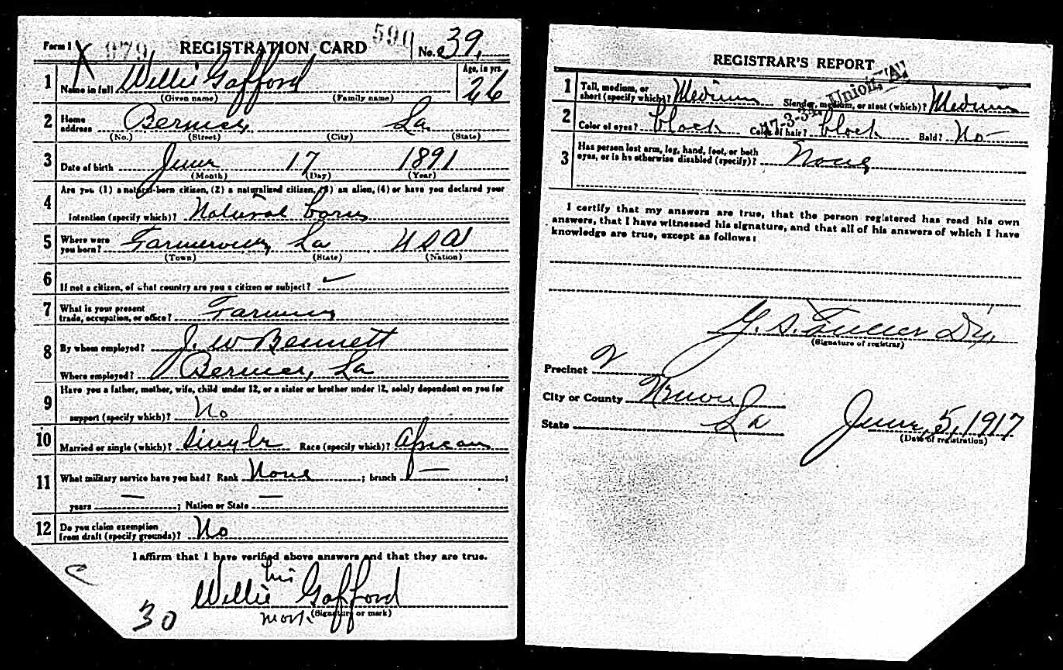 Form 1 X 979 REGISTRATION CARD 599 No. 39,
1 Name in full Willie Gafford Age, in yrs. 26
(Given name) (Family name)
2 Home address Bernice, La.
(No.) (Street) (City) (State)
3 Date of birth June 17 1891
(Month) (Day) (Year)
4 Are you (1) a natural-born citizen, (2) a naturalized citizen, (3) an alien, (4) or have you declared your
intention (specify which)? Natural born
5 Where were you born? Farmerville, La USA
(Town) (State) (Nation)
6 If not a citizen, of what country are you a citizen or subject?
7 What is your present trade, occupation, or office? Farming
8 By whom employed? J. W Bennett
Where employed? Bernice, La
9 Have you a father, mother, wife, child under 12, or a sister or brother under 12, solely dependent on you for
support (specify which)? No
10 Married or single (which)? Single Race (specify which)? African
11 What military service have you had? Rank None ; branch — ;
years — ; Nation or State —
12 Do you claim exemption from draft (specify grounds)? No
I affirm that I have verified above answers and that they are true.
his
Willie Gafford
(Signature or mark)
mark
30
REGISTRAR'S REPORT
1 Tall, medium, or short (specify which)? Medium Slender, medium, or stout (which)? Medium
17-3-34, Union, LA
2 Color of eyes? black Color of hair? black Bald? No
3 Has person lost arm, leg, hand, foot, or both eyes, or is he otherwise disabled (specify)? None
I certify that my answers are true, that the person registered has read his own
answers, that I have witnessed his signature, and that all of his answers of which I have
knowledge are true, except as follows:
(Signature of registrar)
Precinct 2
City or County Union
State La
June, 5, 1917
(Date of registration)